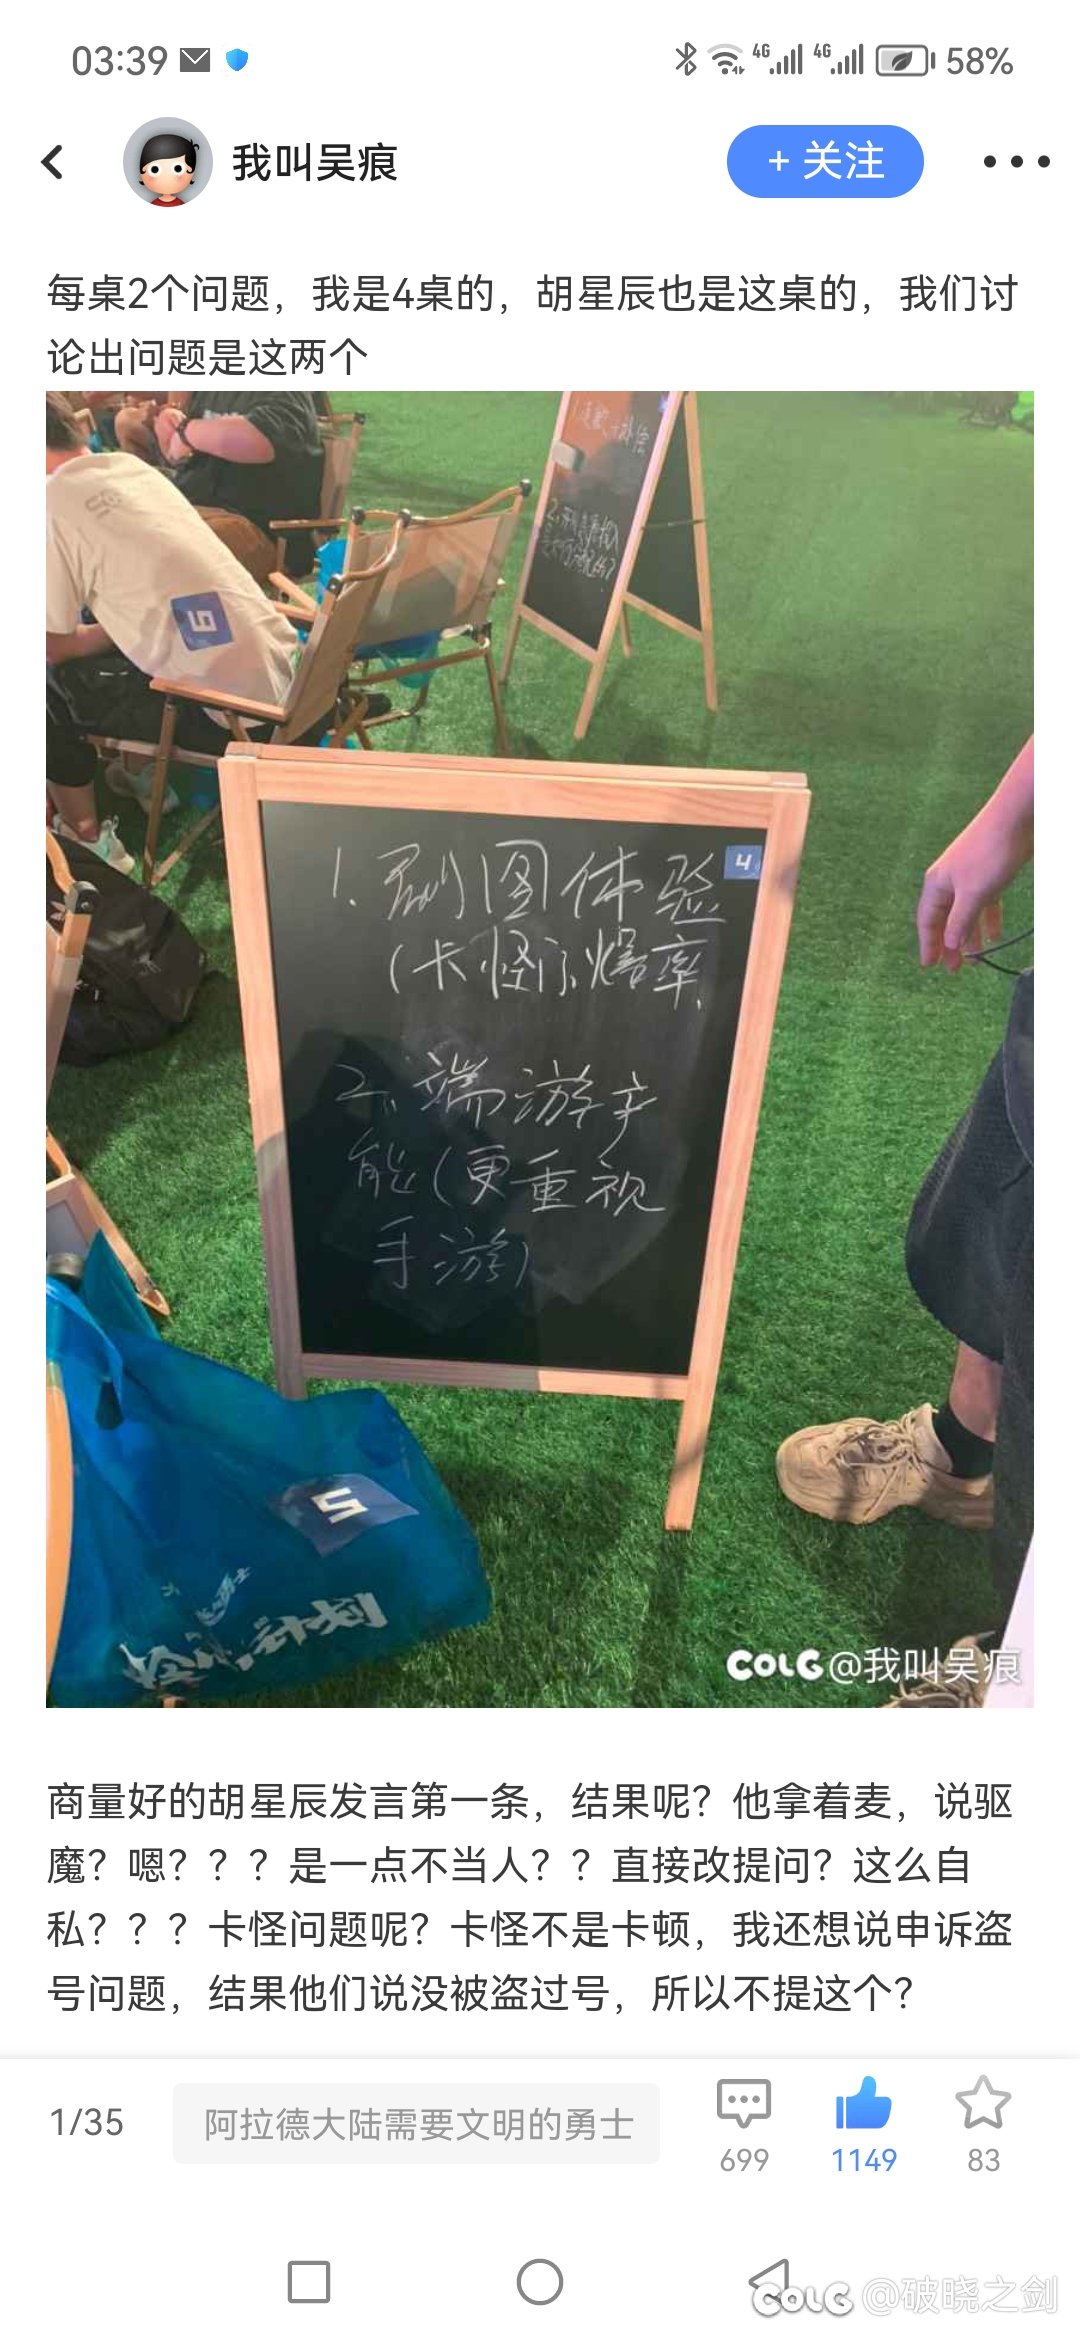 03:39
4G
4G
58%
我叫吴痕
+ 关注
每桌2个问题，我是4桌的，胡星辰也是这桌的，我们讨
论出问题是这两个
1.
2.
4
1. 刷图体验
(卡怪), 爆率
2. 端游产
能(更重视
手游)
5
计划
COLG @我叫吴痕
商量好的胡星辰发言第一条，结果呢？他拿着麦，说驱
魔？嗯？？？是一点不当人？？直接改提问？这么自
私？？？卡怪问题呢？卡怪不是卡顿，我还想说申诉盗
号问题，结果他们说没被盗过号，所以不提这个？
1/35
阿拉德大陆需要文明的勇士
699
1149
83
COLG @破晓之剑